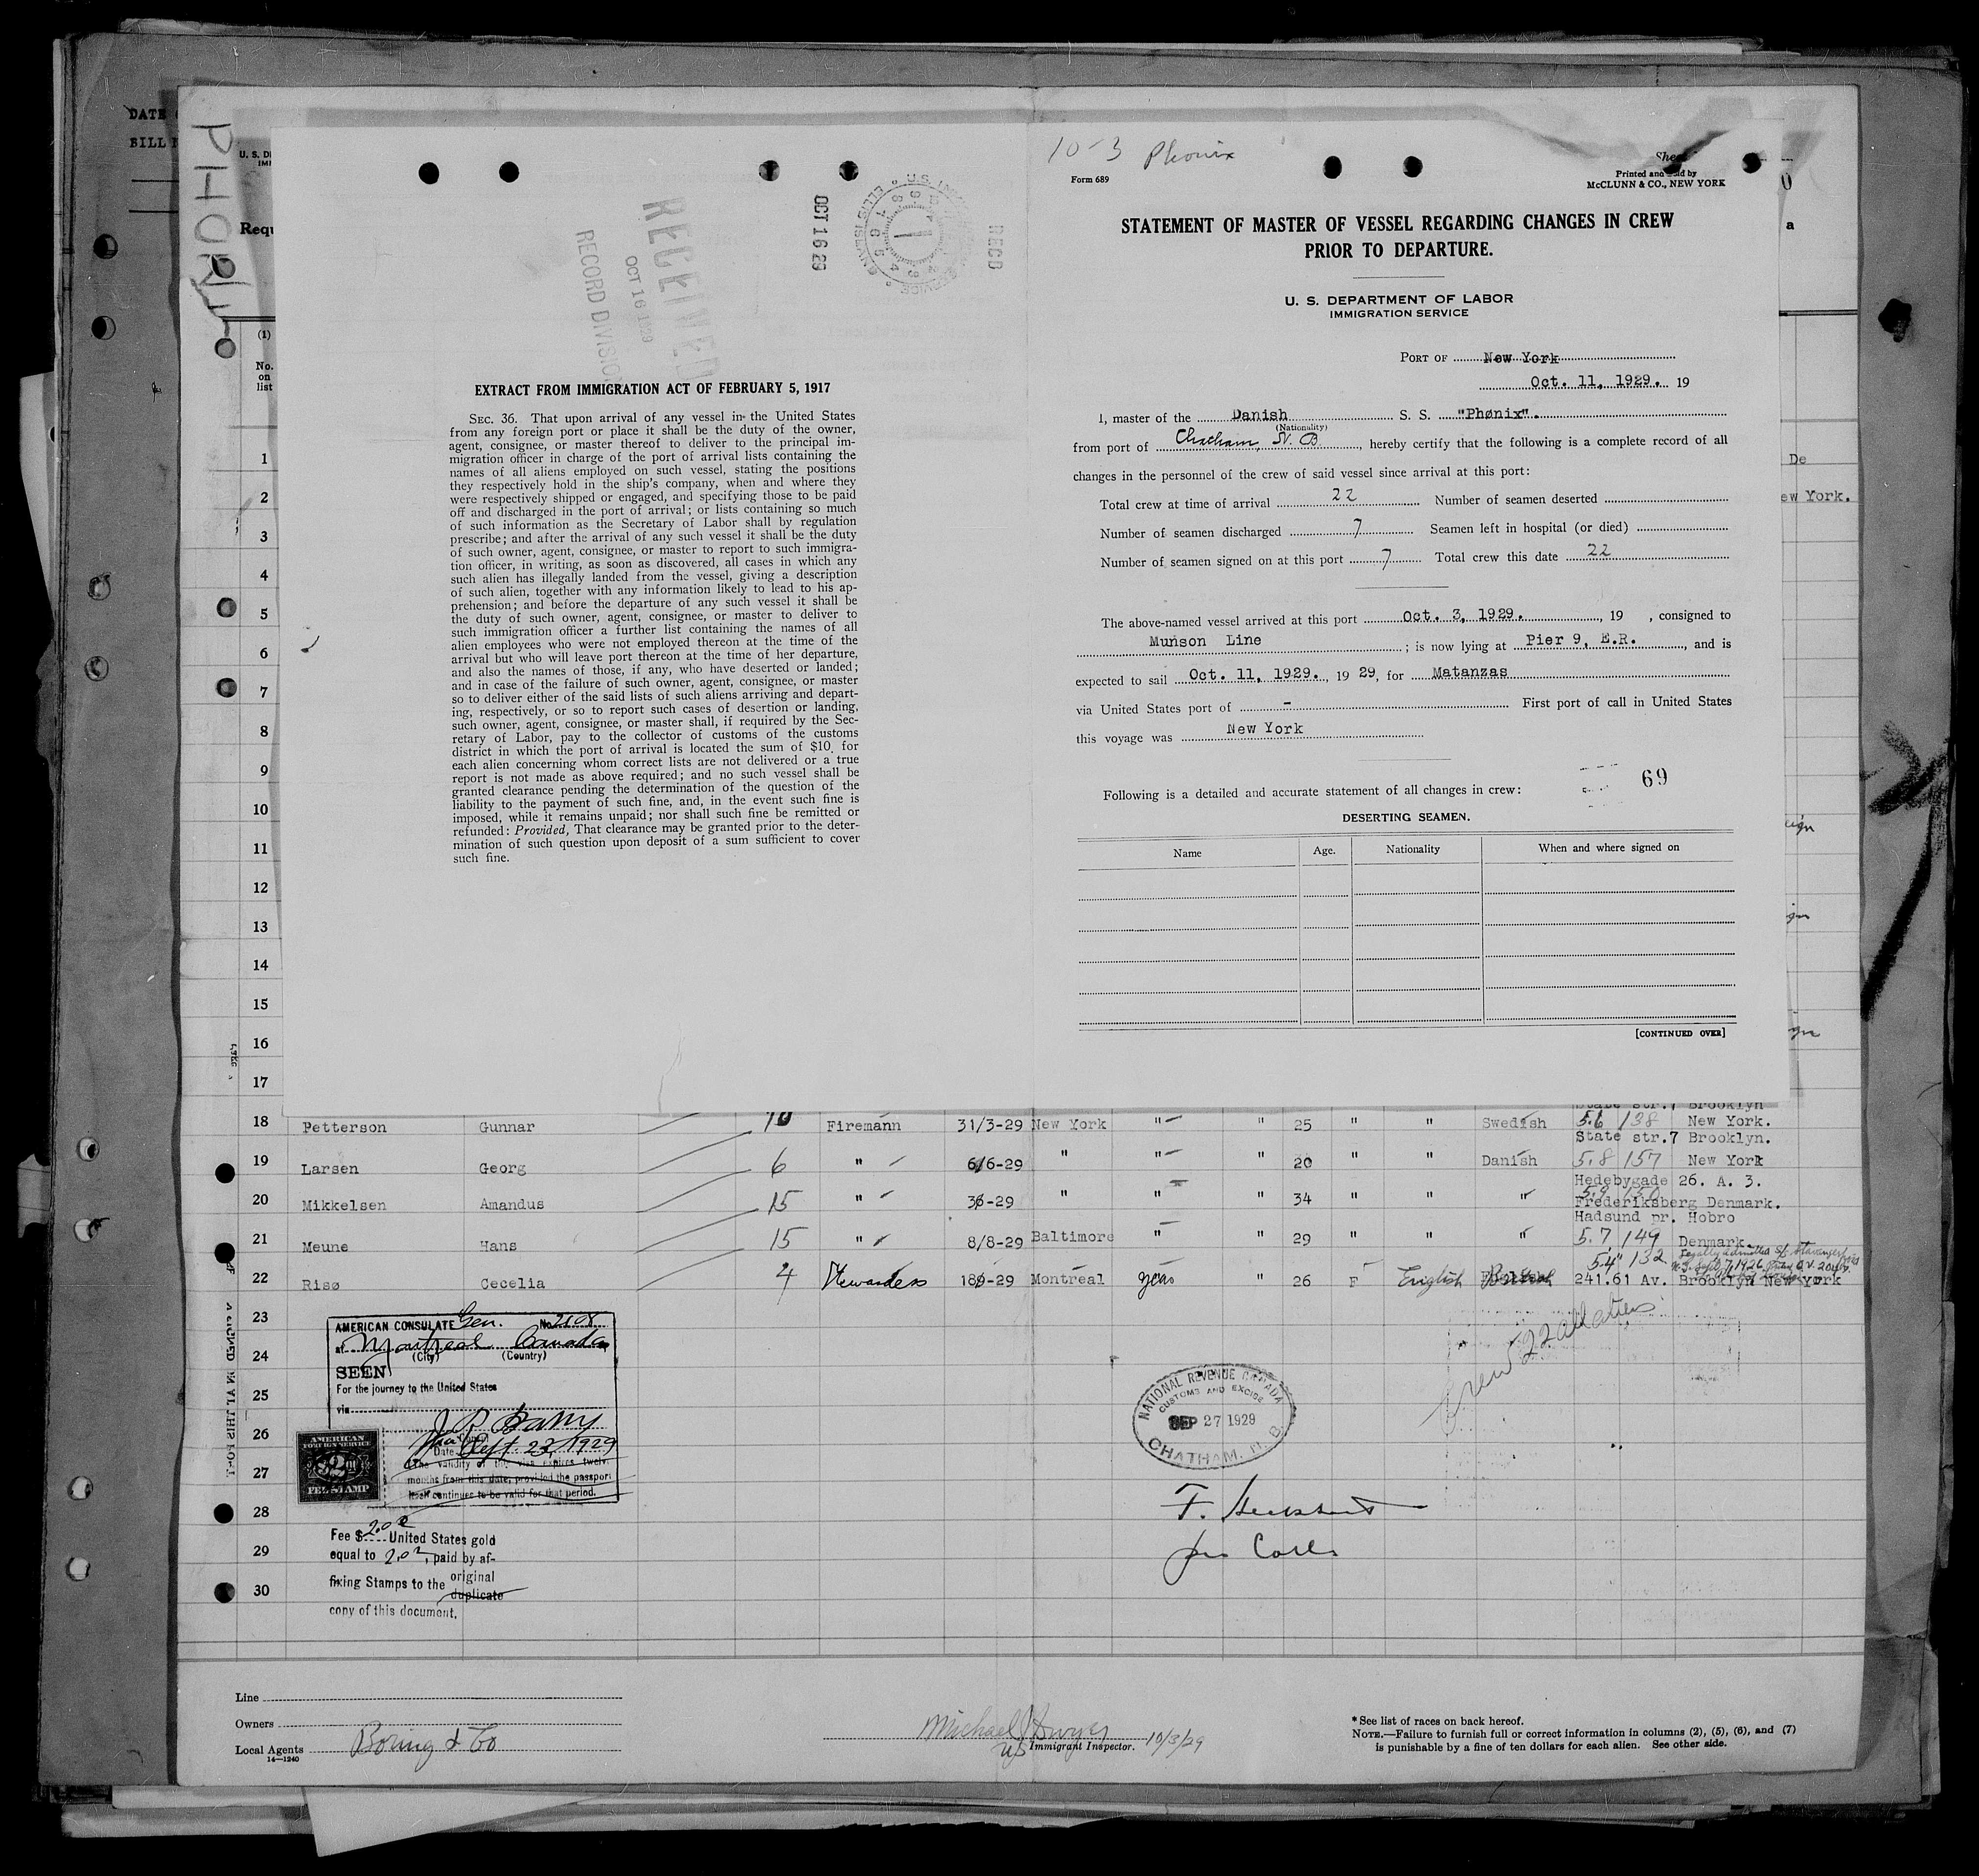 DATE
BILL
PHONIX
U. S. D
IMI
Requ
(1)
No.
on
list
RECEIVED
OCT 16 1929
RECORD DIVISION
OCT 16 29
U.S. IMMIGRATION SERVICE
ELLIS ISLAND
RECD
EXTRACT FROM IMMIGRATION ACT OF FEBRUARY 5, 1917
SEC. 36. That upon arrival of any vessel in the United States
from any foreign port or place it shall be the duty of the owner,
agent, consignee, or master thereof to deliver to the principal im-
migration officer in charge of the port of arrival lists containing the
names of all aliens employed on such vessel, stating the positions
they respectively hold in the ship's company, when and where they
were respectively shipped or engaged, and specifying those to be paid
off and discharged in the port of arrival; or lists containing so much
of such information as the Secretary of Labor shall by regulation
prescribe; and after the arrival of any such vessel it shall be the duty
of such owner, agent, consignee, or master to report to such immigra-
tion officer, in writing, as soon as discovered, all cases in which any
such alien has illegally landed from the vessel, giving a description
of such alien, together with any information likely to lead to his ap-
prehension; and before the departure of any such vessel it shall be
the duty of such owner, agent, consignee, or master to deliver to
such immigration officer a further list containing the names of all
alien employees who were not employed thereon at the time of the
arrival but who will leave port thereon at the time of her departure,
and also the names of those, if any, who have deserted or landed;
and in case of the failure of such owner, agent, consignee, or master
so to deliver either of the said lists of such aliens arriving and depart-
ing, respectively, or so to report such cases of desertion or landing,
such owner, agent, consignee, or master shall, if required by the Sec-
retary of Labor, pay to the collector of customs of the customs
district in which the port of arrival is located the sum of $10. for
each alien concerning whom correct lists are not delivered or a true
report is not made as above required; and no such vessel shall be
granted clearance pending the determination of the question of the
liability to the payment of such fine, and, in the event such fine is
imposed, while it remains unpaid; nor shall such fine be remitted or
refunded: Provided, That clearance may be granted prior to the deter-
mination of such question upon deposit of a sum sufficient to cover
such fine.
10-3 Phonix
Form 689
Sheet
Printed and Sold by
McCLUNN & CO., NEW YORK
STATEMENT OF MASTER OF VESSEL REGARDING CHANGES IN CREW
PRIOR TO DEPARTURE.
U. S. DEPARTMENT OF LABOR
IMMIGRATION SERVICE
PORT OF New York
Oct. 11, 1929. 19
I, master of the Danish S. S. "Phønix".
(Nationality)
from port of Chatham, N. B., hereby certify that the following is a complete record of all
changes in the personnel of the crew of said vessel since arrival at this port:
Total crew at time of arrival 22 Number of seamen deserted
Number of seamen discharged 7 Seamen left in hospital (or died)
Number of seamen signed on at this port 7 Total crew this date 22
The above-named vessel arrived at this port Oct. 3, 1929., 19 , consigned to
Munson Line ; is now lying at Pier 9, E.R., and is
expected to sail Oct. 11, 1929., 19 29, for Matanzas
via United States port of - First port of call in United States
this voyage was New York
69
Following is a detailed and accurate statement of all changes in crew:
DESERTING SEAMEN.
Name Age. Nationality When and where signed on
[CONTINUED OVER]
a
De
ew York.
1
2
3
4
5
6
7
8
9
10
11
12
13
14
15
16
17
State str.7 Brooklyn
18 Petterson Gunnar 10 Firemann 31/3-29 New York " " 25 " " Swedish 5.6 138 New York.
State str.7 Brooklyn.
19 Larsen Georg 6 " 6/6-29 " " " 20 " " Danish 5.8 157 New York
Hedebygade 26. A. 3.
20 Mikkelsen Amandus 15 " 3/6-29 " " " 34 " " " Frederiksberg Denmark.
Hadsund pr. Hobro
21 Meune Hans 15 " 8/8-29 Baltimore " " 29 " " " 5.7 149 Denmark.
5.4" 132 Legally admitted S/S Stavangerfjord
22 Risø Cecelia 4 Stewardess 18/9-29 Montreal yes " 26 F English 241.61 Av. Brooklyn New York
23
24
25
26
27
28
29
30
AMERICAN CONSULATE Gen. No. 2108
at Montreal Canada
(City) (Country)
SEEN
For the journey to the United States
via
J R Barry
Date Sept. 23, 1929
The validity of this visa expires twelve
months from this date, provided the passport
itself continues to be valid for that period.
AMERICAN
FOREIGN SERVICE
$2.00
FEE STAMP
Fee $ 2.00 United States gold
equal to 2.00, paid by af-
fixing Stamps to the original
duplicate
copy of this document.
NATIONAL REVENUE CANADA
CUSTOMS AND EXCISE
SEP 27 1929
CHATHAM, N. B.
Crew 22 all aliens
Line
Owners
Local Agents Boring & Co
14—1240
Michael Dwyer
US Immigrant Inspector. 10/3/29
* See list of races on back hereof.
NOTE.—Failure to furnish full or correct information in columns (2), (5), (6), and (7)
is punishable by a fine of ten dollars for each alien. See other side.